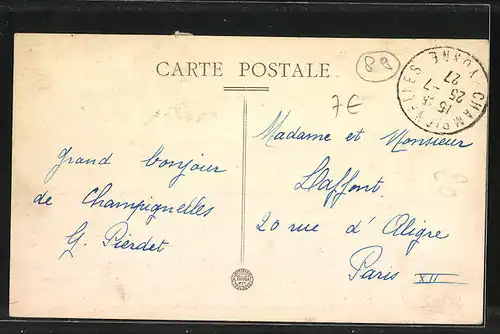 89
CARTE POSTALE
7€
CHAMPIGNELLES
YONNE
15-8
25 -7
27
Madame et Monsieur
Laffont
20 rue d'Aligre
Paris XII
Grand bonjour
de Champignelles
G. Pierdet